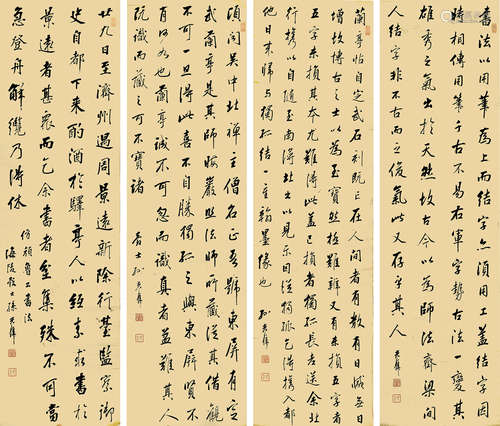 書法以用筆為上而結字亦須用工盖結字因
時相傳用筆千古不易右軍字勢古法一變其
雄秀之氣出於天然故古今以為師法齊梁間
人結字非不古而乏俊氣此又存乎其人
蘭亭帖自定武石刻既亡在人間者有數有日減無日
增故博古之士以為至寶然極難辨又有未損五字者
五字未損其本尤難得此蓋已損者獨孤長老送余北
行攜以自隨至南潯北出以見示因從獨孤乞得攜入都
他日來歸與獨孤結一重翰墨緣也
頃聞吳中北禪主僧名正吾號東屏有定
武蘭亭是其師晦巖照法師所藏從其借觀
不可一旦得此喜不自勝獨孤之與東屏賢不
肖何如也蘭亭誠不可忽識真者益難其人
既識而藏之可不寶諸
廿九日至濟州遇周景遠新除行臺監察御
史自都下來酌酒於驛亭人以紙素求書於
景遠者甚衆而乞余書者坌集殊不可當
急登舟解纜乃得休